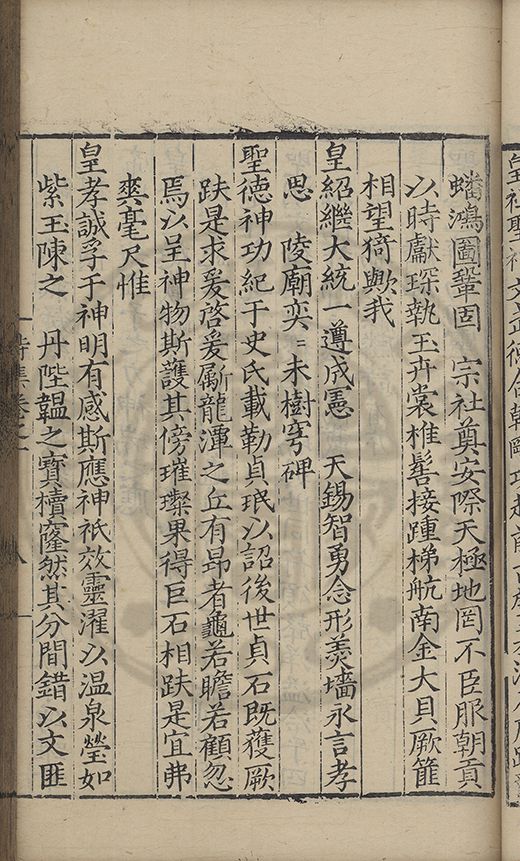 蟠鴻圖鞏固　宗社奠安際天極地罔不臣服朝貢
以時獻琛執玉卉裳椎髻接踵梯航南金大貝厥篚
相望猗歟我
皇紹繼大統一遵成憲　天錫智勇念形羹墻永言孝
思　陵廟奕〻未樹穹碑
聖德神功紀于史氏載勒貞珉以詔後世貞石既獲厥
趺是求爰啓爰斸龍潭之丘有昂者龜若瞻若顧忽
焉以呈神物斯護其傍璀璨果得巨石相趺是宜弗
爽毫尺惟
皇孝誠孚于神明有感斯應神祇效靈濯以温泉瑩如
紫玉陳之　丹陛韞之寶櫝窿然其分間錯以文匪